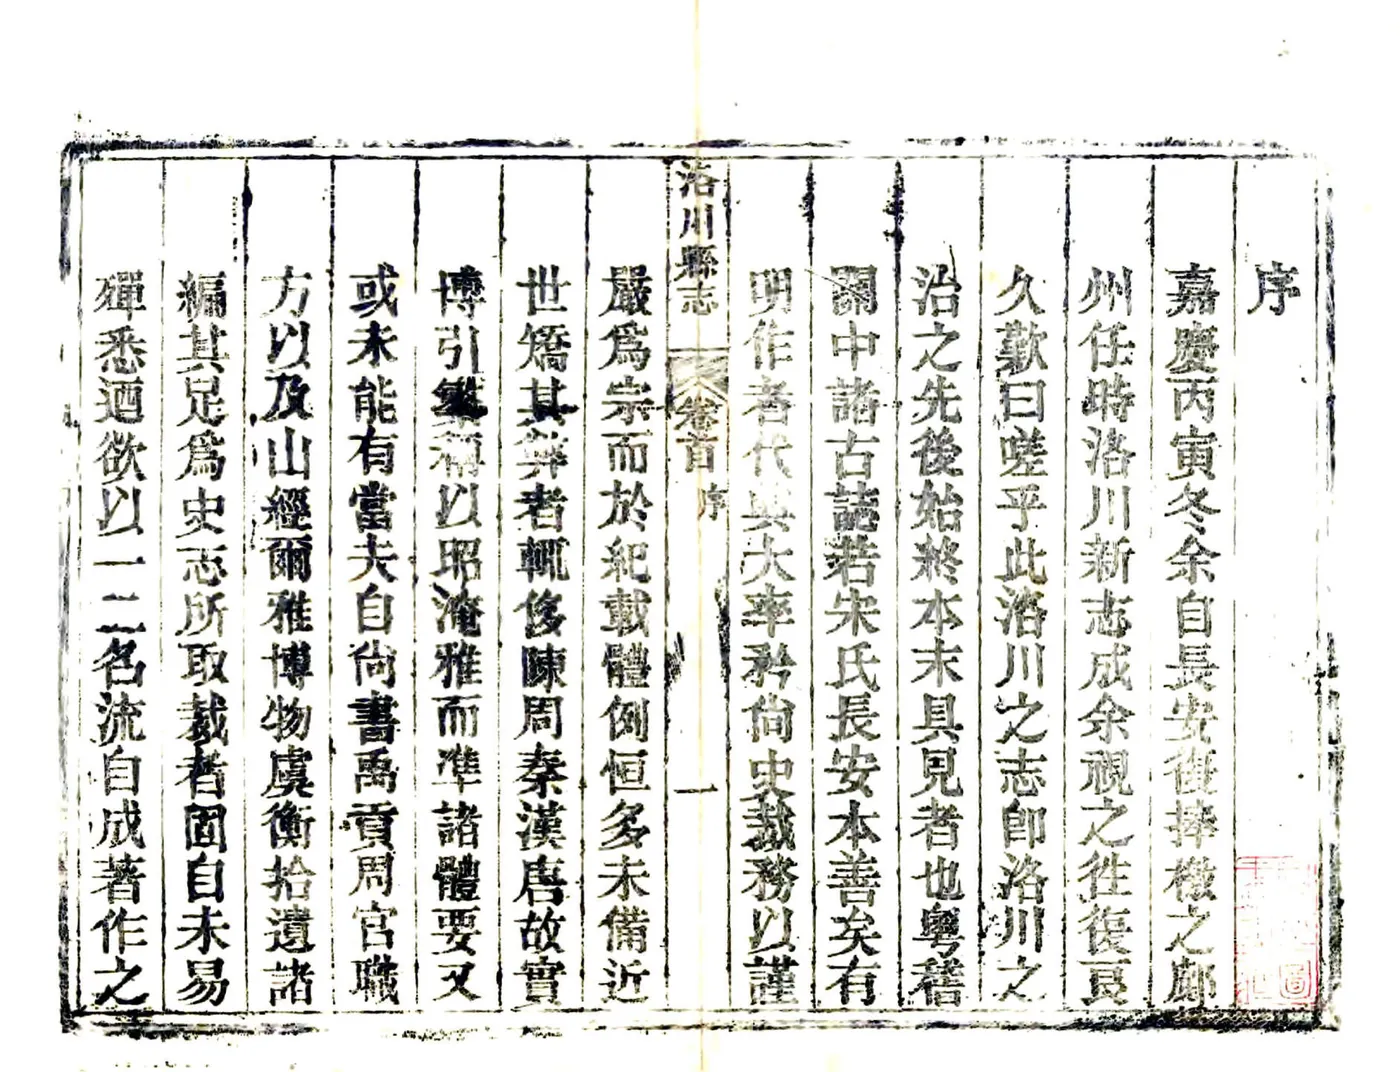 序
嘉慶丙寅冬余自長安復捧檄之鄜
州任時洛川新志成余視之徃復頁
久歎曰嗟乎此洛川之志卽洛川之
治之先後始終本末具見者也粵稽
關中諸古誌若宋氏長安本善矣有
明作者代興大率矜尙史裁務以謹
洛川縣志
卷首
序
一
嚴爲宗而於紀載體例恒多未備近
世矯其弊者輒侈陳周秦漢唐故實
博引繁稱以昭淹雅而準諸體要又
或未能有當夫自尙書禹貢周官職
方以及山經爾雅博物虞衡拾遺諸
編其足爲史志所取裁者固自未易
殫悉迺欲以一二名流自成著作之